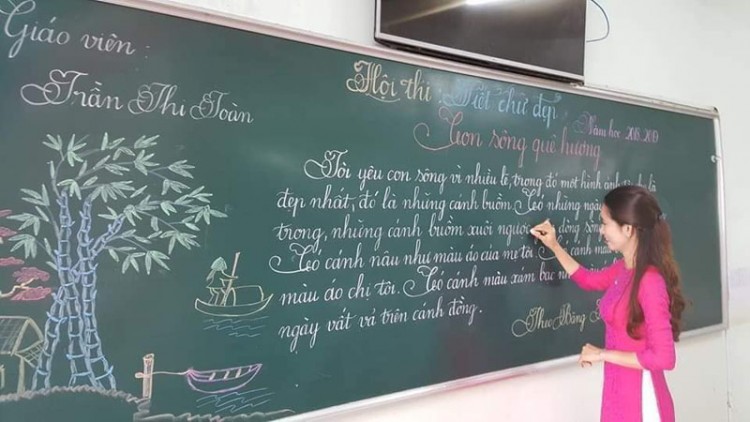 Giáo viên:
Trần Thi Toàn
Hội thi: Viết chữ đẹp
Năm học 2018-2019
Con sông quê hương
Tôi yêu con sông vì nhiều lẽ, trong đó một hình ảnh là
đẹp nhất, đó là những cánh buồm. Có những ngày
trong, những cánh buồm xuôi ngược dòng sông
Có cánh nâu như màu áo của mẹ tôi. Có cánh màu
màu áo chị tôi. Có cánh màu xám bạc
ngày vất vả trên cánh đồng.
Theo Băng